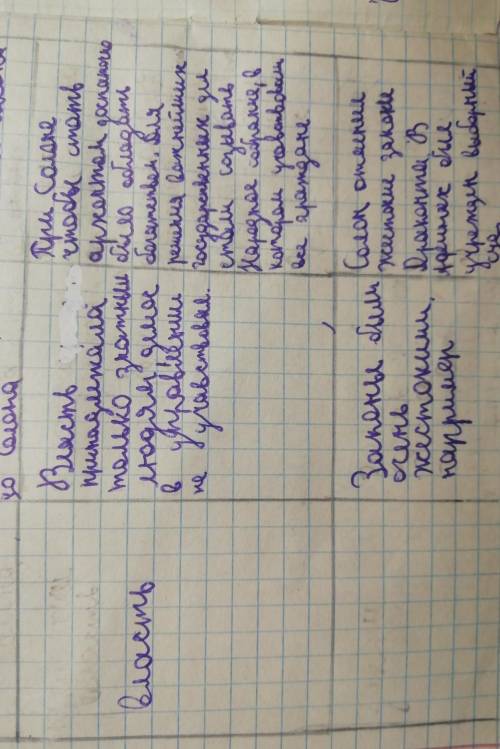 до Солона
власть
Власть
принадлежала
только знатным
людям, демос
в управлении
не участвовал.
При Солоне
чтобы стать
архонтом достаточно
было обладать
богатством. Для
решения важнейших
государственных дел
стали созывать
Народное собрание, в
котором участвовали
все граждане.
Законы были
очень
жестокими,
например
Солон отменил
жестокие законы
Драконта. В
Афинах был
учрежден выборный
суд.